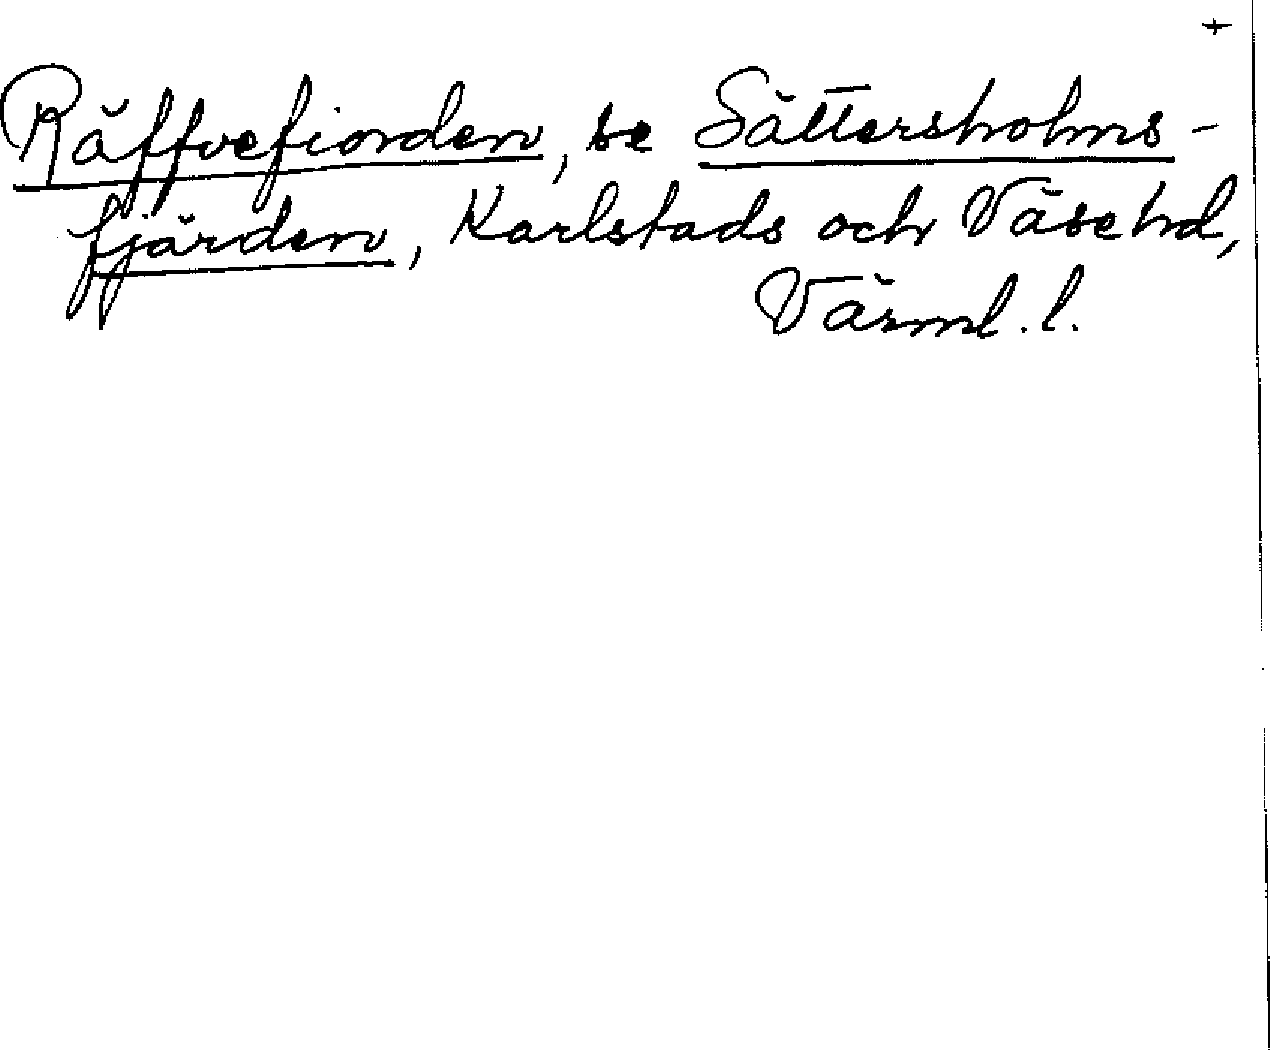 +
Räffvefiorden, se Sättersholms-
fjärden, Karlstads och Väse hd,
Värml. l.